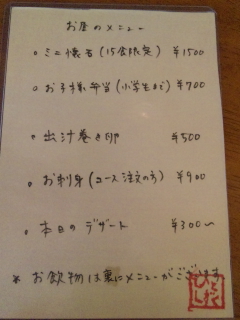 お昼のメニュー
。ミニ懐石(15食限定) ¥1500
。お子様弁当(小学生まで) ¥700
。出汁巻き卵 ¥500
。お刺身(コース注文の方) ¥900
。本日のデザート ¥300〜
* お飲物は裏にメニューがございます